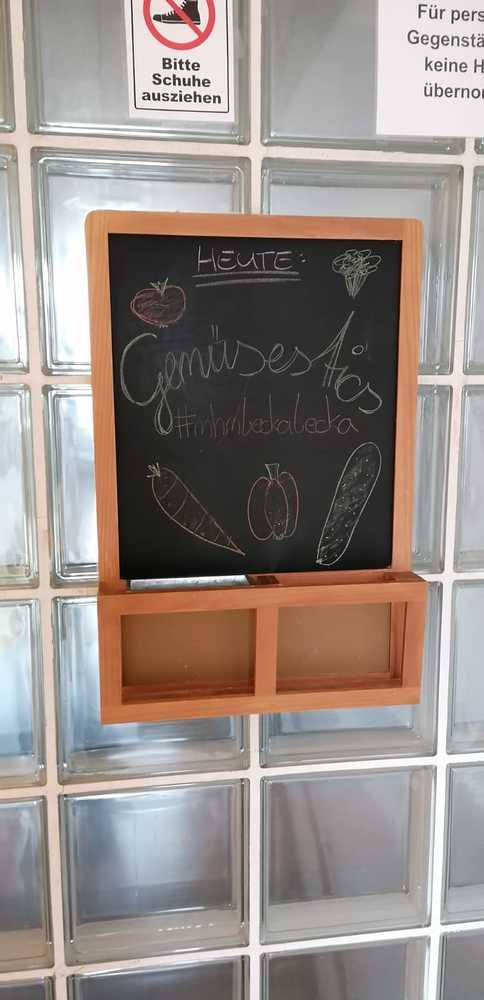 Bitte
Schuhe
ausziehen
Für pers
Gegenstä
keine H
übernor
HEUTE:
Gemüsesticks
#mhmleckalecka